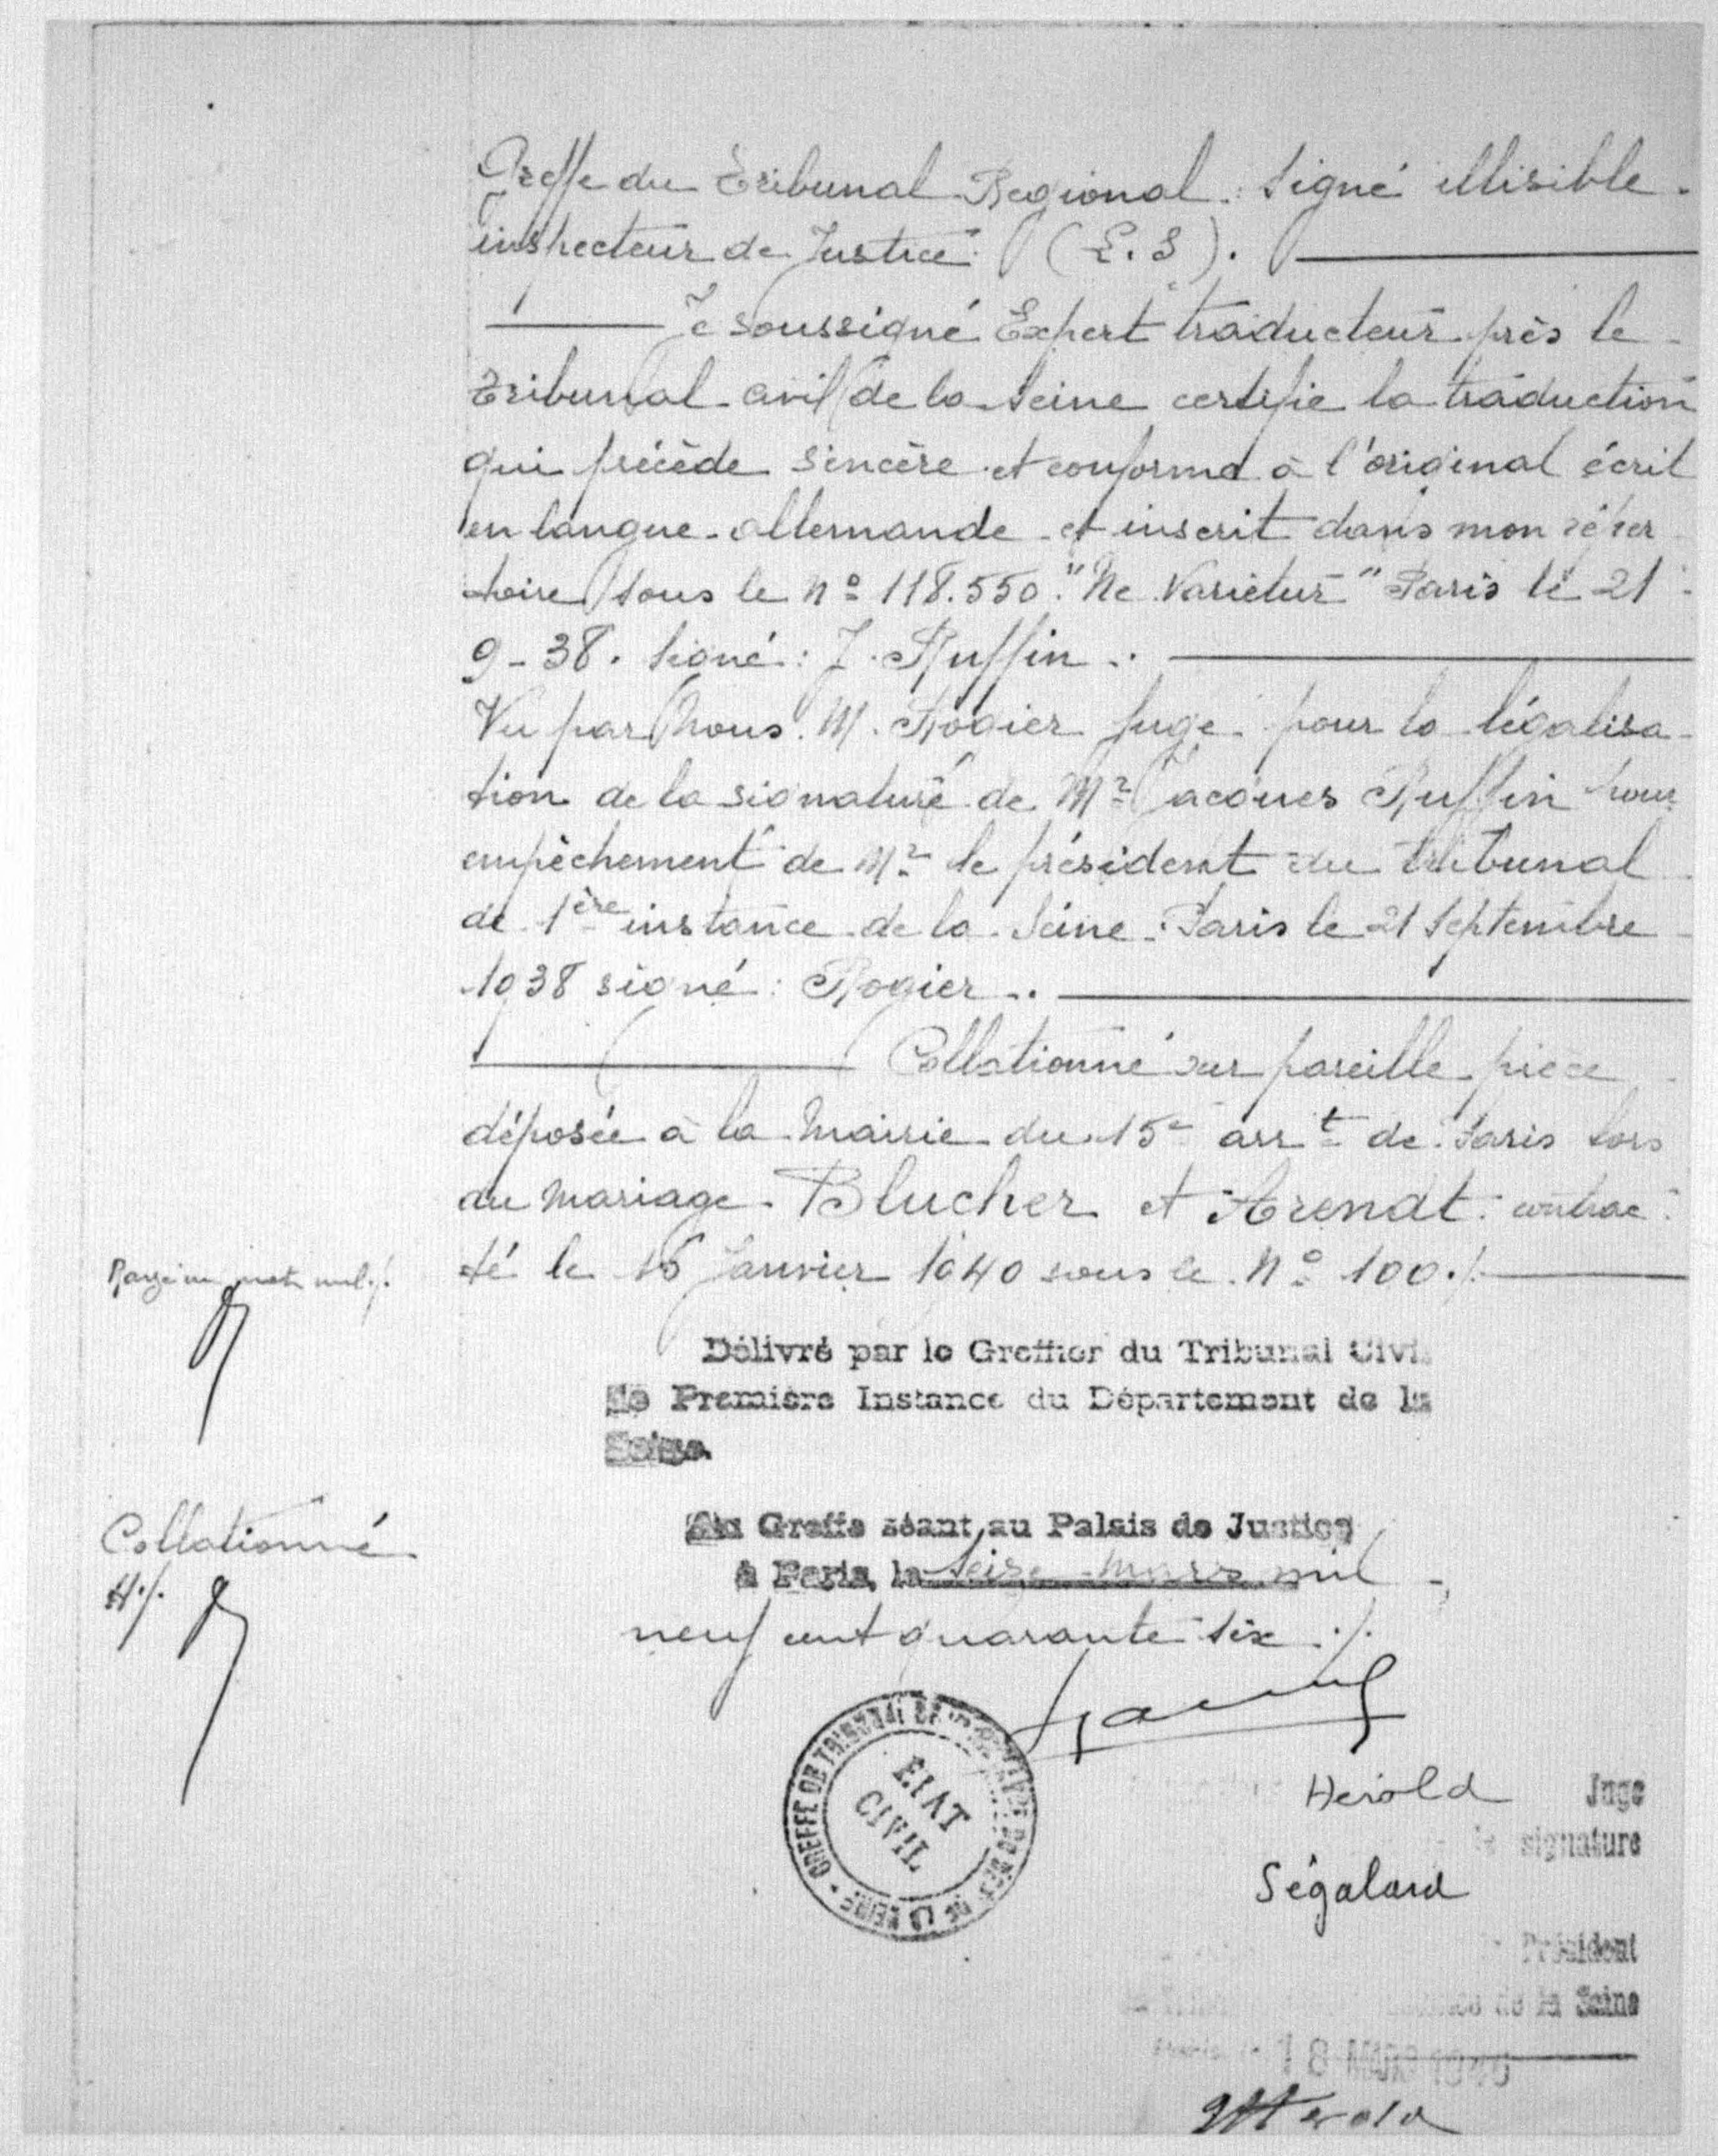 Greffe du Tribunal Regional. Signé illisible.
inspecteur de Justice. (L.S).
Je soussigné Expert traducteur près le
Tribunal civil de la Seine certifie la traduction
qui précède sincère et conforme à l'original écrit
en langue allemande et inscrit dans mon réper
toire sous le nº 118.550. "Ne Varietur" Paris le 21
9-38. Signé: J. Ruffin.
Vu par Nous. M. Rogier juge pour la légalisa
tion de la signature de Mr Jacques Ruffin pour
empêchement de Mr le président du tribunal
de 1ère instance de la Seine. Paris le 21 Septembre
1938 signé: Rogier..
Collationné sur pareille pièce
déposée à la Mairie du 15e arrt de Paris lors
du mariage Blucher et Arendt contrac
té le 16 Janvier 1940 sous le Nº 100./.
Rayé un mot nul./.
Délivré par le Greffier du Tribunal Civil
de Première Instance du Département de la
Seine.
Au Greffe séant au Palais de Justice
à Paris, le Seize mars mil
neuf cent quarante six ./.
Collationné
H./.
GREFFE DU TRIBUNAL DE 1ERE INSTANCE DU DEPT DE LA SEINE
ETAT
CIVIL
Herold Juge
la signature
Ségalard
Président
de la Seine
18 MARS 1946
Herold